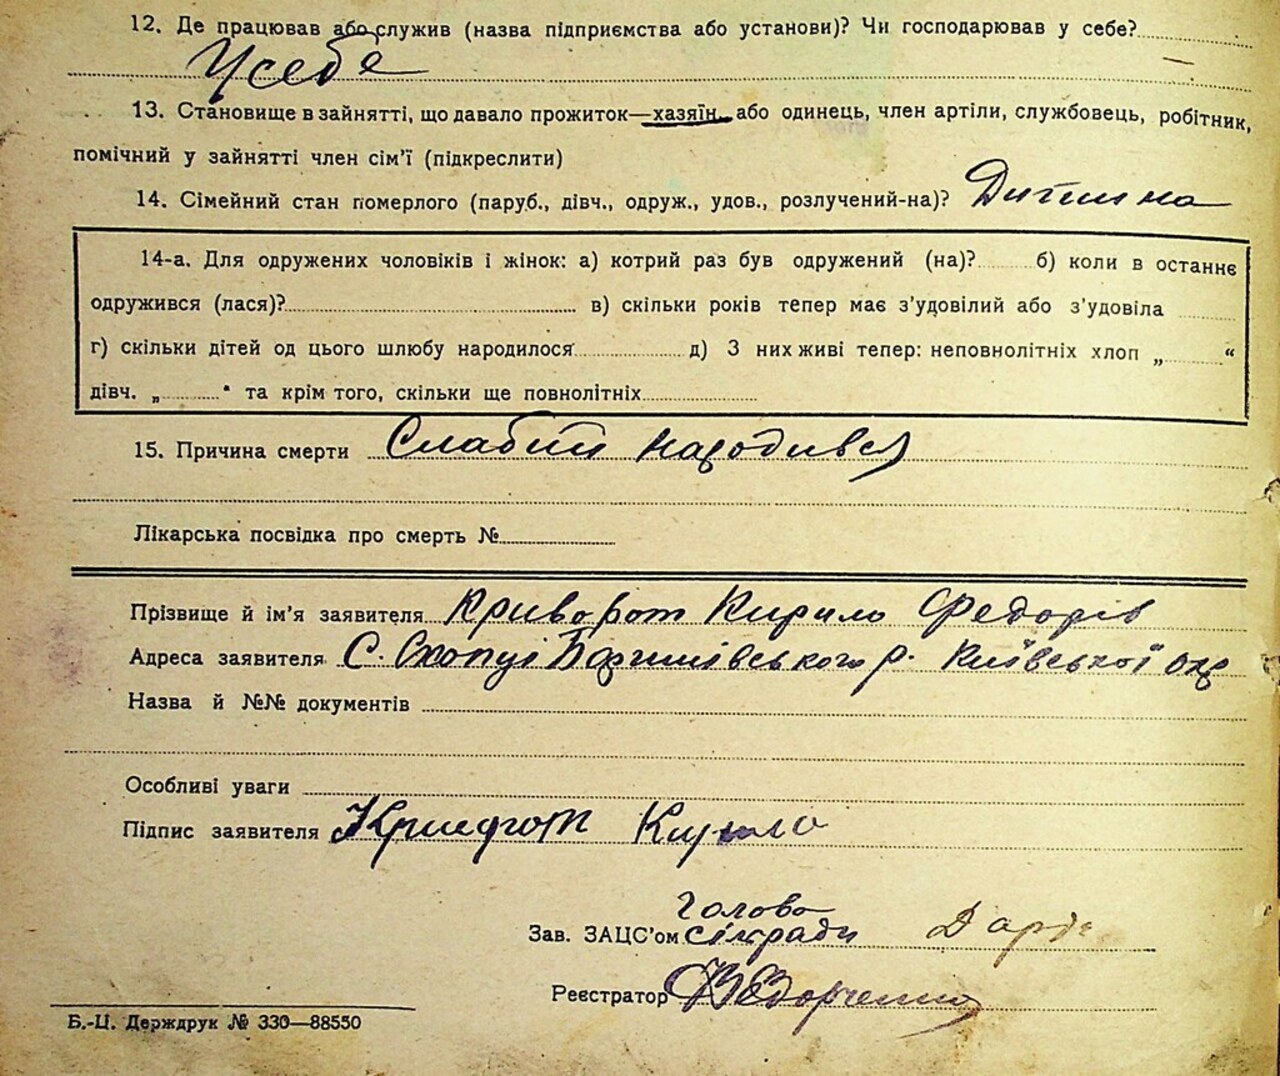 12. Де працював або служив (назва підприємства або установи)? Чи господарював у себе?
У себе
13. Становище в зайнятті, що давало прожиток—хазяїн, або одинець, член артіли, службовець, робітник,
помічний у зайнятті член сім'ї (підкреслити)
14. Сімейний стан померлого (паруб., дівч., одруж., удов., розлучений-на)? Дитина
14-а. Для одружених чоловіків і жінок: а) котрий раз був одружений (на)? б) коли в останнє
одружився (лася)? в) скільки років тепер має з'удовілий або з'удовіла
г) скільки дітей од цього шлюбу народилося д) З них живі тепер: неповнолітніх хлоп „ “
дівч. „ “ та крім того, скільки ще повнолітніх
15. Причина смерти Слабий народився
Лікарська посвідка про смерть №
Прізвище й ім'я заявителя Криворот Кирило Федорів
Адреса заявителя С. Скопці Баришівського р. Київської окр
Назва й №№ документів
Особливі уваги
Підпис заявителя Криворот Кирило
Голова
Зав. ЗАЦС'ом сілради
Реєстратор Федорченко
Б.-Ц. Держдрук № 330—88550